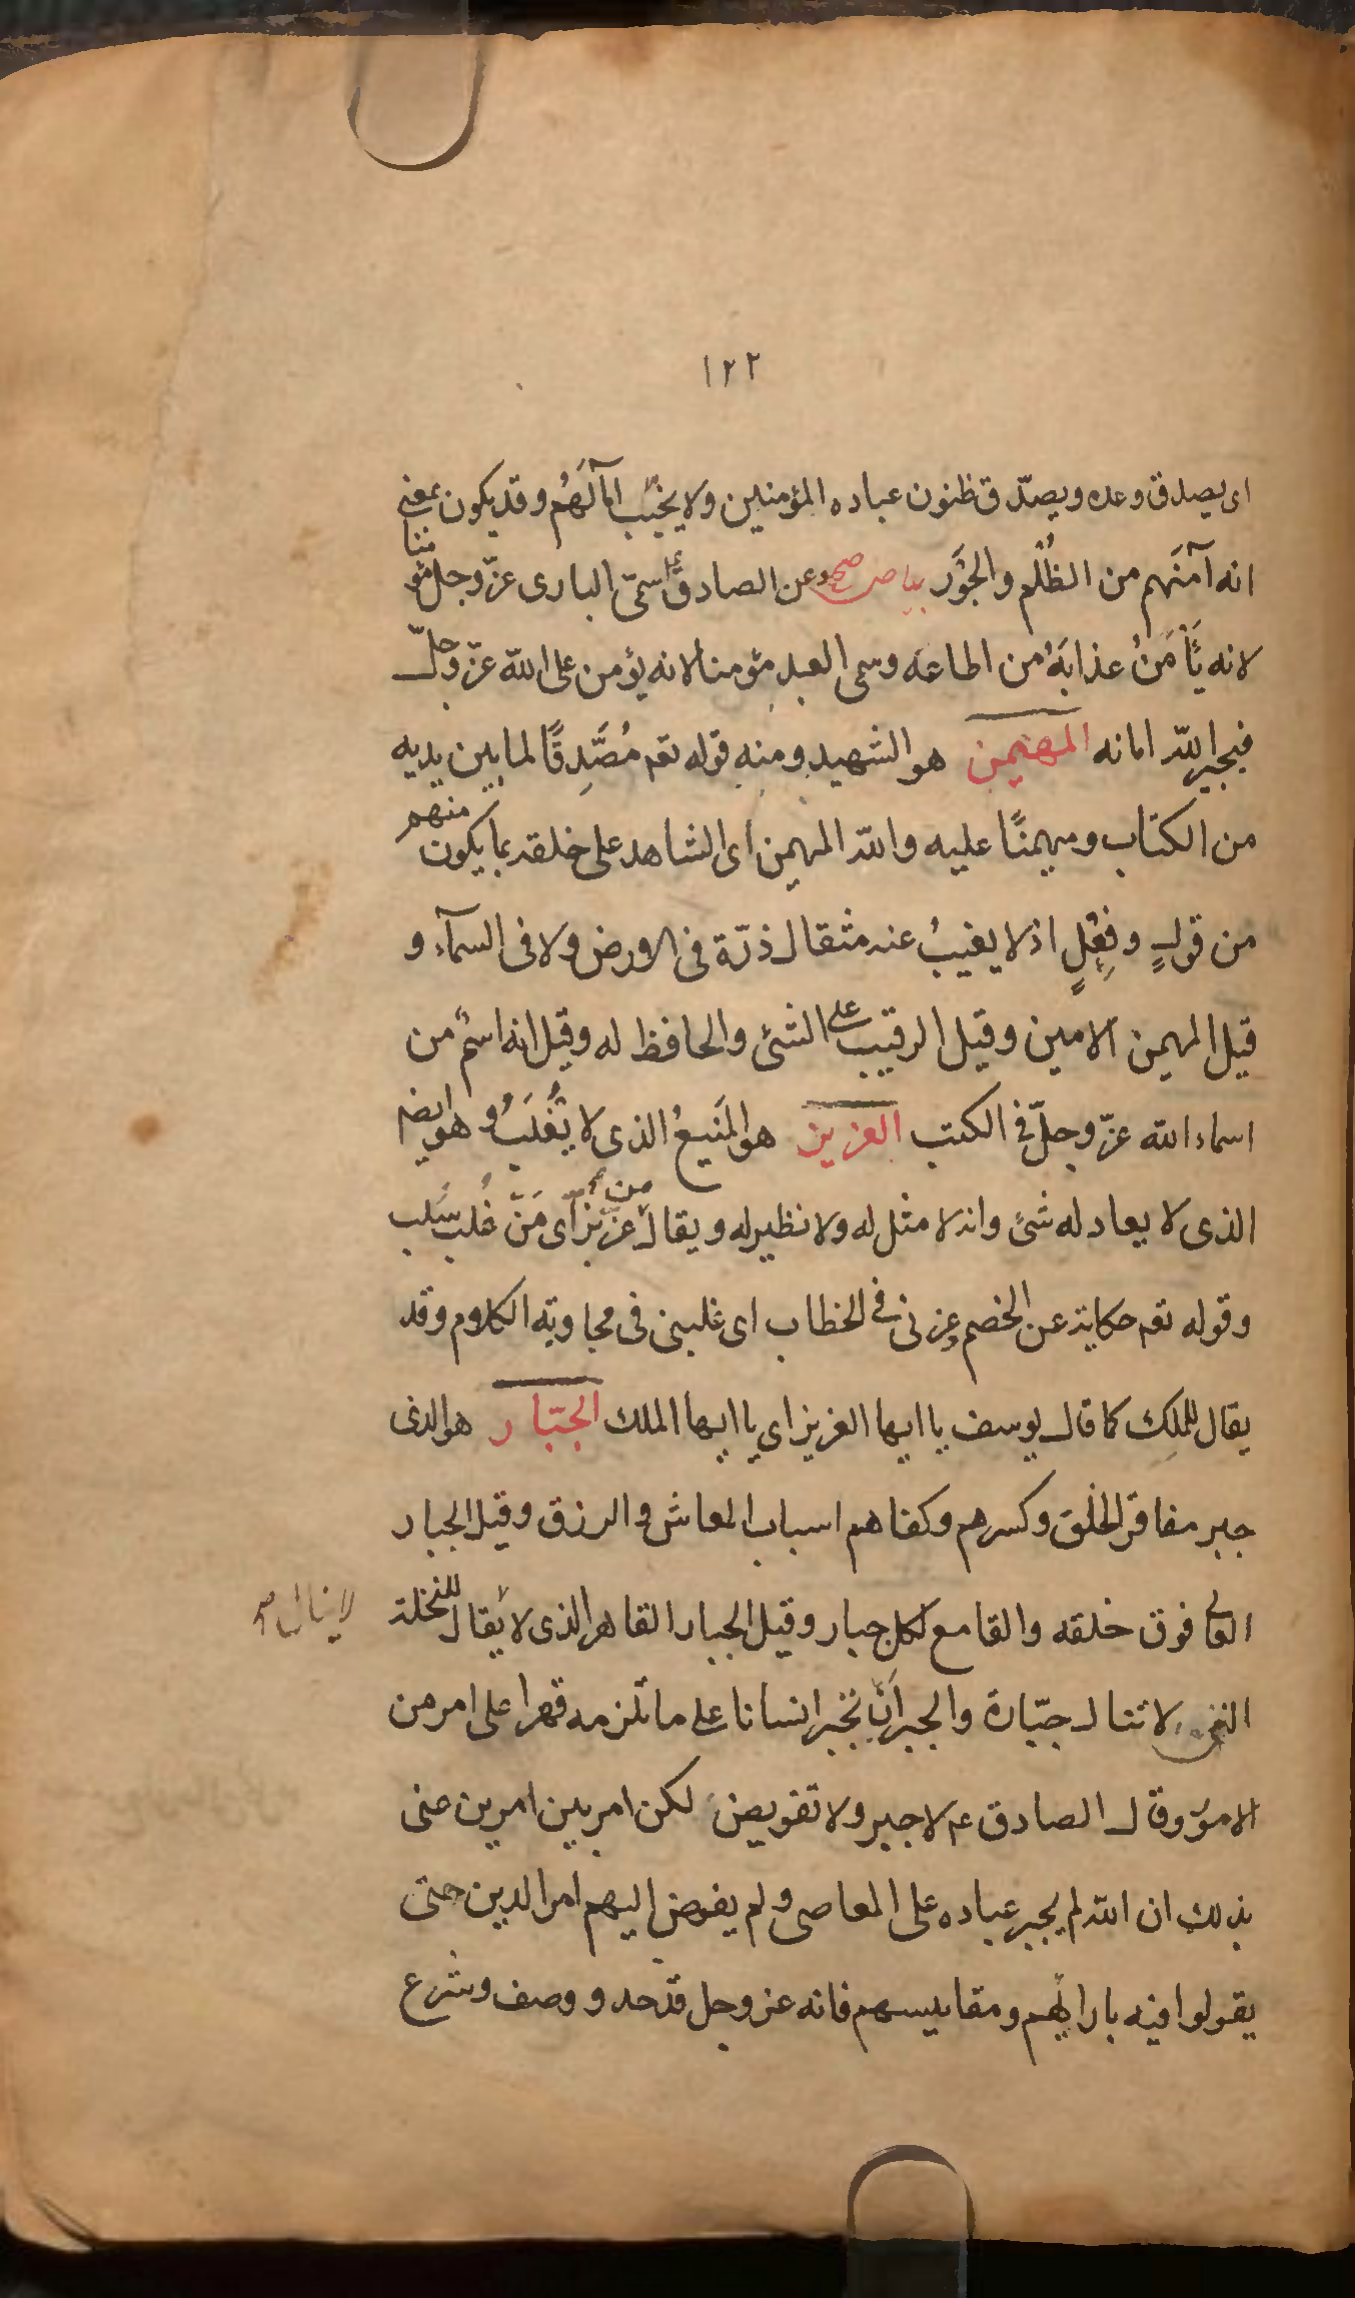 ١٢٢
اى يصدق وعده ويصدّق ظنون عباده المؤمنين ولا يخيّب امآلَهُم وقد يكون بمعنى
انه آمَنَهم من الظُلْم والجَوْر بياض صح وعن الصادق ع سمّى البارى عزّ وجل مؤمنا
لانه يَأْمَنُ عذابَهُ من اطاعه وسمى العبد مؤمنا لانه يؤمن على الله عزّ وجلّ
فيجير الله امانه المهيمن هو الشهيد ومنه قوله تعم مُصَّدِقًا لما بين يديه
من الكتاب ومهيمنًا عليه والله المهيمن اى الشاهد على خلقه بما يكون منهم
من قولٍ وفِعْلٍ اذ لا يغيبُ عنه مثقال ذرّة فى الارض ولا فى السمآء و
قيل المهيمن الامين وقيل الرقيب على الشئ والحافظ له وقيل انه اسم من
اسماء الله عزّ وجلّ فى الكتب العزيز هو المَنيعُ الذى لا يُغْلَبُ وهو ايضم
الذى لا يعادله شئ وانه لا مثل له ولا نظير له ويقال من عَزّ بَزّ اى مَنْ غَلَب سَلب
وقوله تعم حكاية عن الخصم وعزنى فى الخطاب اى غلبنى فى مجاوبة الكلام وقد
يقال للملِك كما قال يوسف يا ايها العزيز اى يا ايها الملك الجبّار هو الذى
جبر مفاقر الخلق وكسرهم وكفاهم اسباب المعاش والرزق وقيل الجبار
العالى فوق خلقه والقامع لكل جبار وقيل الجبار القاهر الذى لا يقال للنخلة
لا ينال م
التى لا تنال جبّارة والجبر اَن تجبر انسانا على ما تلزمه قهرا على امر من
الامور وقال الصادق عم لا جبر ولا تفويض لكن امر بين امرين عنى
بذلك ان الله لم يجبر عباده على المعاصى ولم يفوض اليهم امر الدين حتى
يقولوا فيه بارائهم ومقاييسهم فانه عز وجل قد حد ووصف وشرع